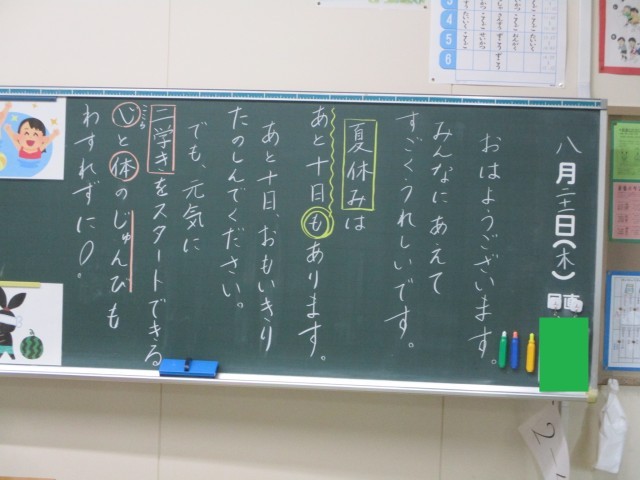 八月二十二日(木)
おはようございます。
みんなにあえて
すごくうれしいです。
夏休みは
あと十日もあります。
あと十日、おもいきり
たのしんでください。
でも、元気に
二学きをスタートできる
こころ
心と体のじゅんびも
わすれずに○。
3
4
5
6
2